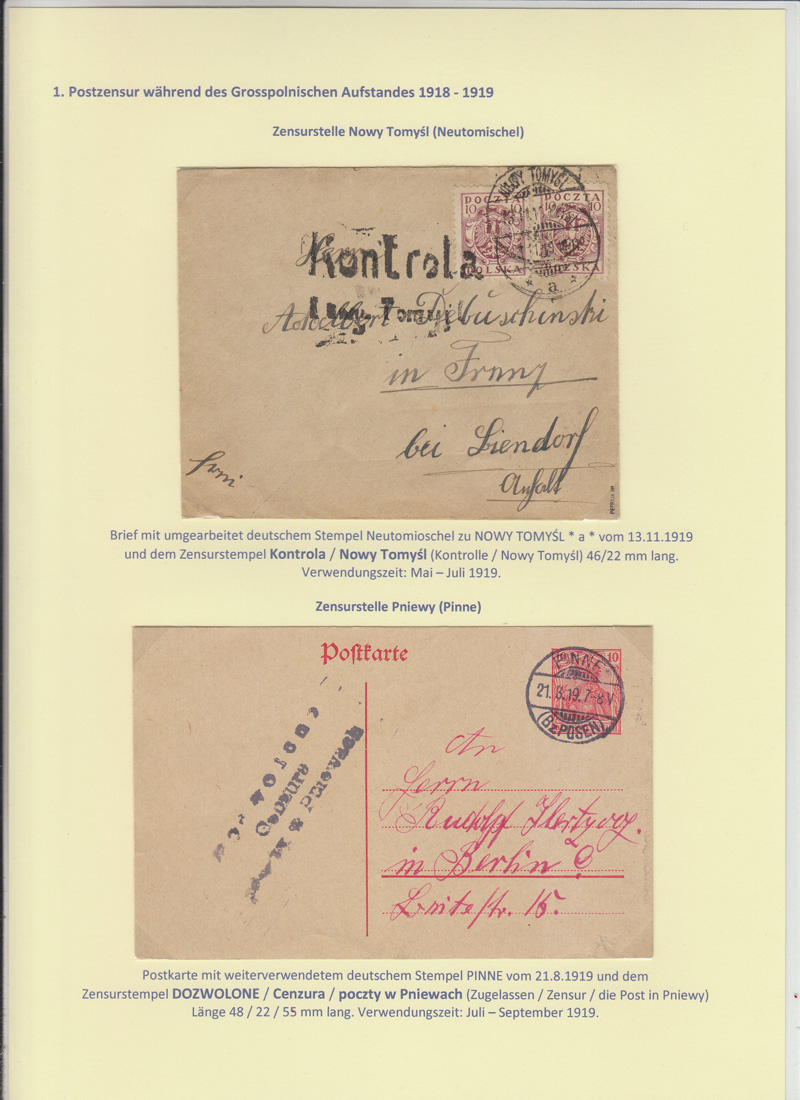 1. Postzensur während des Grosspolnischen Aufstandes 1918 - 1919
Zensurstelle Nowy Tomyśl (Neutomischel)
NOWY TOMYŚL
POCZTA POCZTA
10 10 10
POLSKA
* a *
Kontrola
Herrn
Adalbert Debuschinski
in Franz
bei Liendorf
Anhalt
Brief mit umgearbeitet deutschem Stempel Neutomioschel zu NOWY TOMYŚL * a * vom 13.11.1919
und dem Zensurstempel Kontrola / Nowy Tomyśl (Kontrolle / Nowy Tomyśl) 46/22 mm lang.
Verwendungszeit: Mai – Juli 1919.
Zensurstelle Pniewy (Pinne)
Postkarte
10
PINNE
21. 8. 19. 7-8 V
(Bz. POSEN)
Cenzura
w Pniewach
An
Herrn
Rudolph Hertzog.
in Berlin C
Breitestr. 15.
Postkarte mit weiterverwendetem deutschem Stempel PINNE vom 21.8.1919 und dem
Zensurstempel DOZWOLONE / Cenzura / poczty w Pniewach (Zugelassen / Zensur / die Post in Pniewy)
Länge 48 / 22 / 55 mm lang. Verwendungszeit: Juli – September 1919.